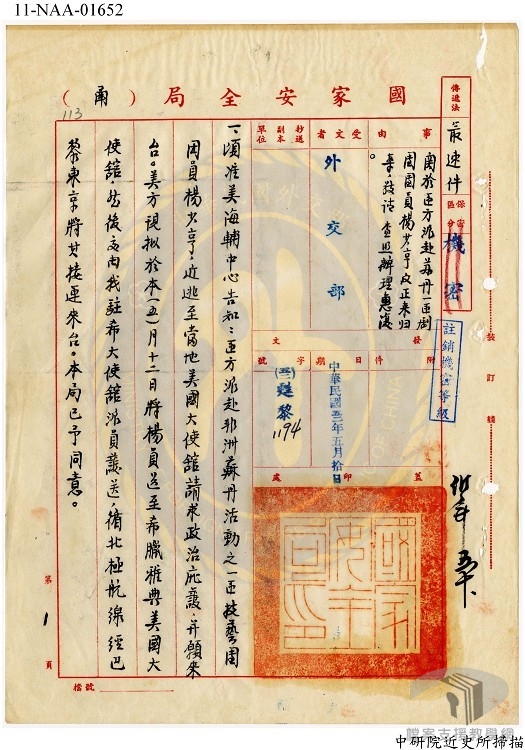 11-NAA-01652
國家安全局（ ）（函）
113
傳遞法
最速件
保密區分
機密
註銷機密等級
事由
關於匪方派赴蘇丹一匪劇
團團員楊 亨反正來归
事，敬請 查照辦理惠復
。
受文者
外交部
抄送副本單位
發文
附件
日期
中華民國五二年五月拾日
字號
(五二)甦黎1194
蓋印處
國家安全局印
裝訂線
一、頃准美海輔中心告知：匪方派赴非洲蘇丹活動之一匪技藝團
團員楊 亨，近逃至當地美國大使舘請求政治庇護，并願來
台。美方現拟於本(五)月十二日將楊員送至希臘雅典美國大
使舘，然後交由我駐希大使舘派員護送，循北極航線經巴
黎東京將其接運來台。本局已予同意。
第1頁
檔號
檔案支援教學網
中研院近史所掃描